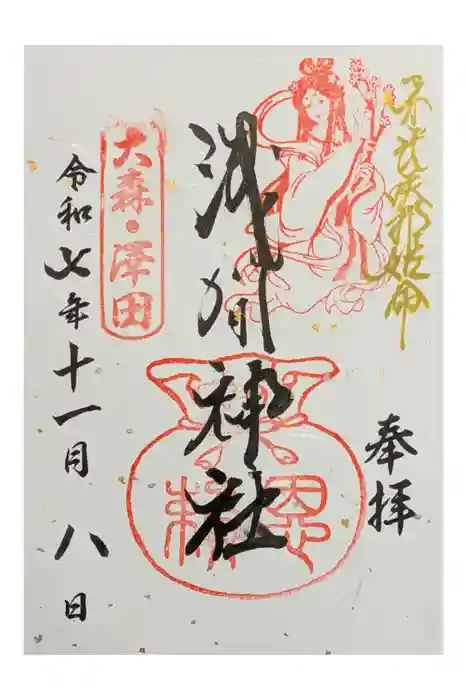 木花咲耶姫命
奉拝
浅間神社
恩頼
大森・澤田
令和七年十一月八日